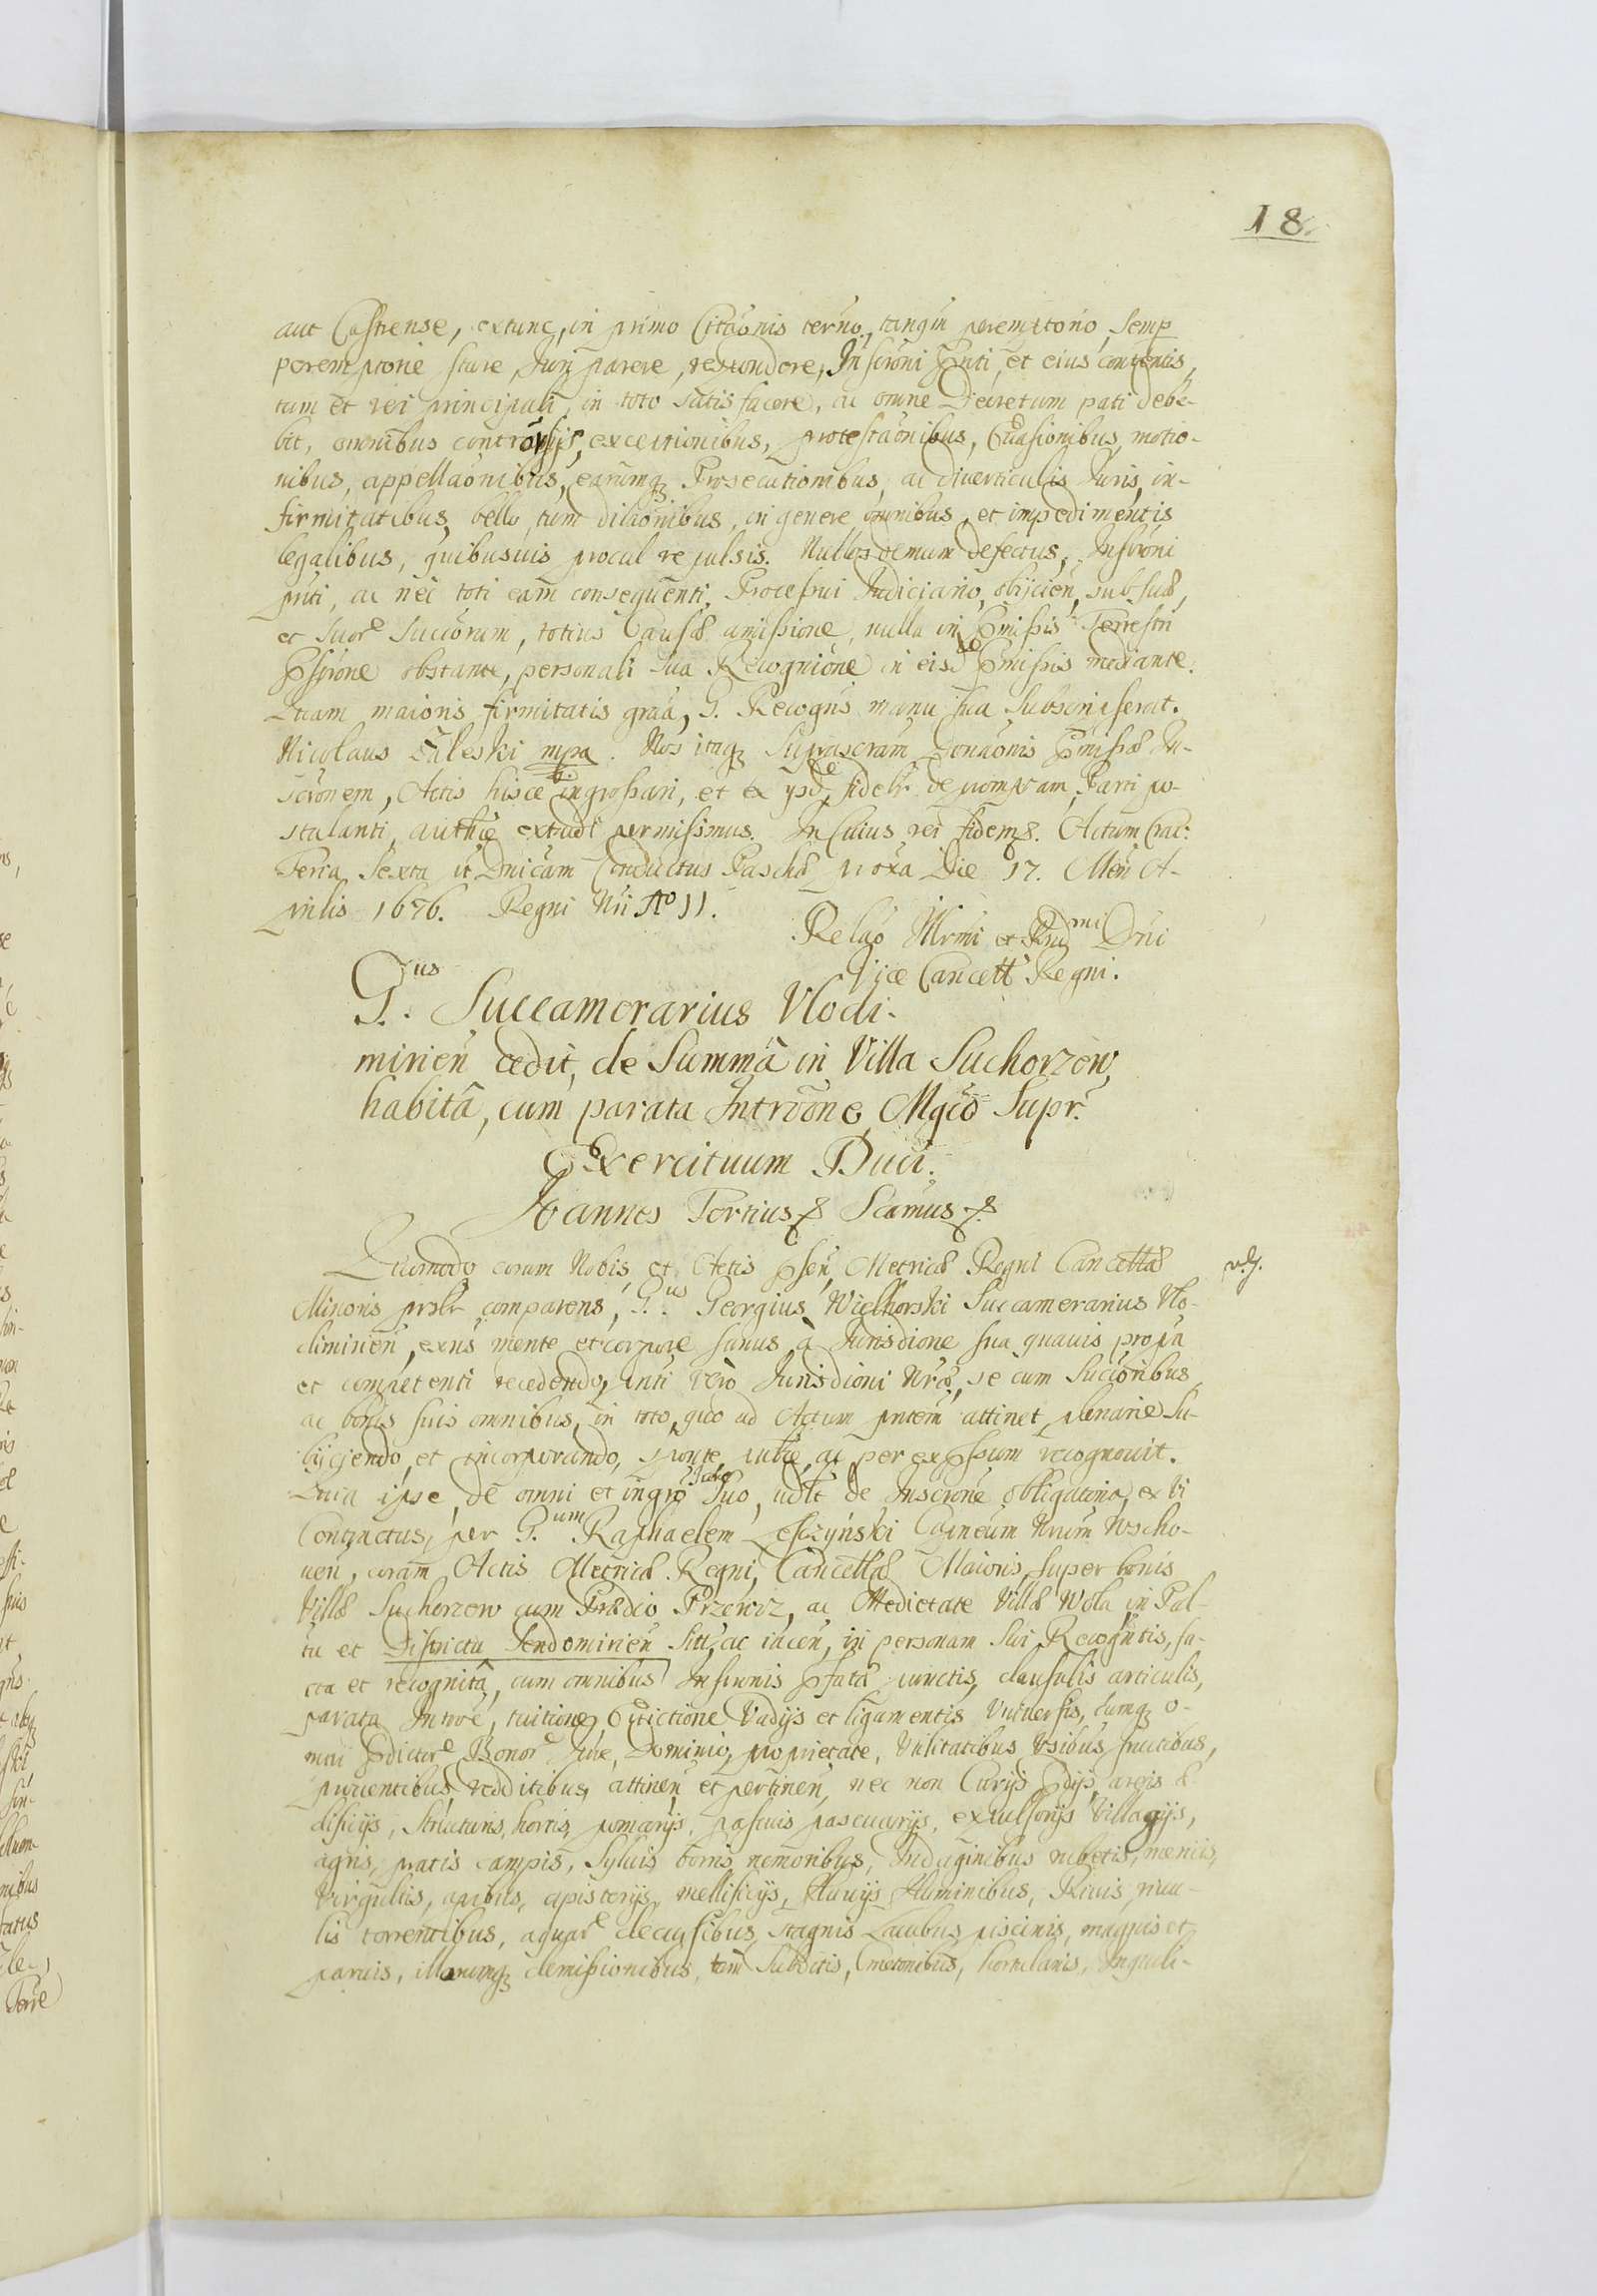 18.
aut Castrense, extunc, in primo Citãonis termõ, tanq̃m peremptorio, Semp
peremptorie stare, Juri parere, respondere, Inscrõni pñti, et eius contentis,
tum et rei principali, in toto satisfacere, ac omne Decretum pati debe-
bit, omnibus controv̉sijs, exceptionibus, protestãonibus, Evasionibus, motio-
nibus, appellaõnibus, earumq; Prosecutionibus, ac diverticulis Iuris, in-
firmitatibus, bello, tum dilaõnibus, in genere omnibus, et impedimentis
legalibus, quibusuis procul repulsis. Nullos demum defectus, Inscrõni
pñti, ac nec toti eam conseque͂nti, Processui Judiciario, obijcien, sub suæ,
et Suorᵉ Succõrum, totius Causæ amissione, nulla in Pmissis Terrestri
obstante, personali sua Recognitõne in eisd Pmissis mediante.
Quam maioris firmitatis graã, G. Recogñs manu sua Subscripserat.
Nicolaus mpa. Nos itaq; Suprascrãm Donãonis Pmissæ In-
scrõnem, Actis hisce ingrossari, et ex ijsde, fidelr depromptam, Parti po-
stulanti, authce extradi permisimus. In Cuius rei fidem &. Actum Crac:
Feria Sexta p̃ Dnicam Conductus Paschæ proxa Die 17. Men A-
prilis 1676. Regni Nri Aº 11.
Relaõ Illrmi et Rndmi Dni
Vice Cancell Regni.
G.us Succamerarius Vlodi-
mirien cedit, de Summâ in Villa Suchorzow,
habitâ, cum parata Intrõone, Mgcõ Supr.
Exercituum Duci.
Joannes Tertius & Scamus &
Quomodo coram Nobis, et Actis Psen, Metricæ Regni Cancellæ
Minoris prslr comparens, G.us Georgius Wielhorski Succamerarius Vlo-
dimirien, exns mente et corpore sanus, à Jurisdione sua quauis propa
et competenti recedendo, pnti verò Jurisdioni Nræ, se cum Succõribus
ac bonis suis omnibus, in toto, qco ad Actum pntem attinet, plenarie Su-
bijcjendo, et incorporando, sponte, pubce, ac per exPssum recognouit.
Quia ipse, de omni et ingro Jure Suo, uolt de Inscrõne obligatoria, ex vi
Contractus, per G.um Raphaelem Leszczyński Capneum Nrum Wscho-
uen, coram Actis Metricæ Regni, Cancellæ Maioris, super bonis
Villæ Suchorzow cum Prædio Przewoz, ac Medietate Villæ Wola, in Pal-
tu et Districtu Sendomirien Sitt, ac iacen, in personam Sui Recogntis, fa-
cta et recognitâ, cum omnibus Inscrõnis Pfatæ punctis, clausulis articulis,
parata Introe, tuitione, Euictione Vadijs et ligamentis Vniuersis, cumq; o-
mni Pdictorᵉ Bonorᵉ Jure, Dominio, proprietate, Vtilitatibus Vsibus, fructibus,
prouentibus, redditibus, attinen et pertinen, nec non Curijs Pdijs, areis æ
dificijs, Structuris, hortis, pomarijs, pascuis pascuarijs, expulsorijs Villagijs,
agris, pratis campis, Syluis borris nemoribus, Indaginibus rubetis, mericis,
Virgultis, apibus, apisterijs, mellificijs, fluuijs Fluminibus, Riuis, riuu-
lis torrentibus, aquarᵉ decursibus, stagnis Lacubus piscinis, magnis et
paruis, illarumq; demissionibus, tam Subditis, Cmetonibus, hortulanis, Inquili-